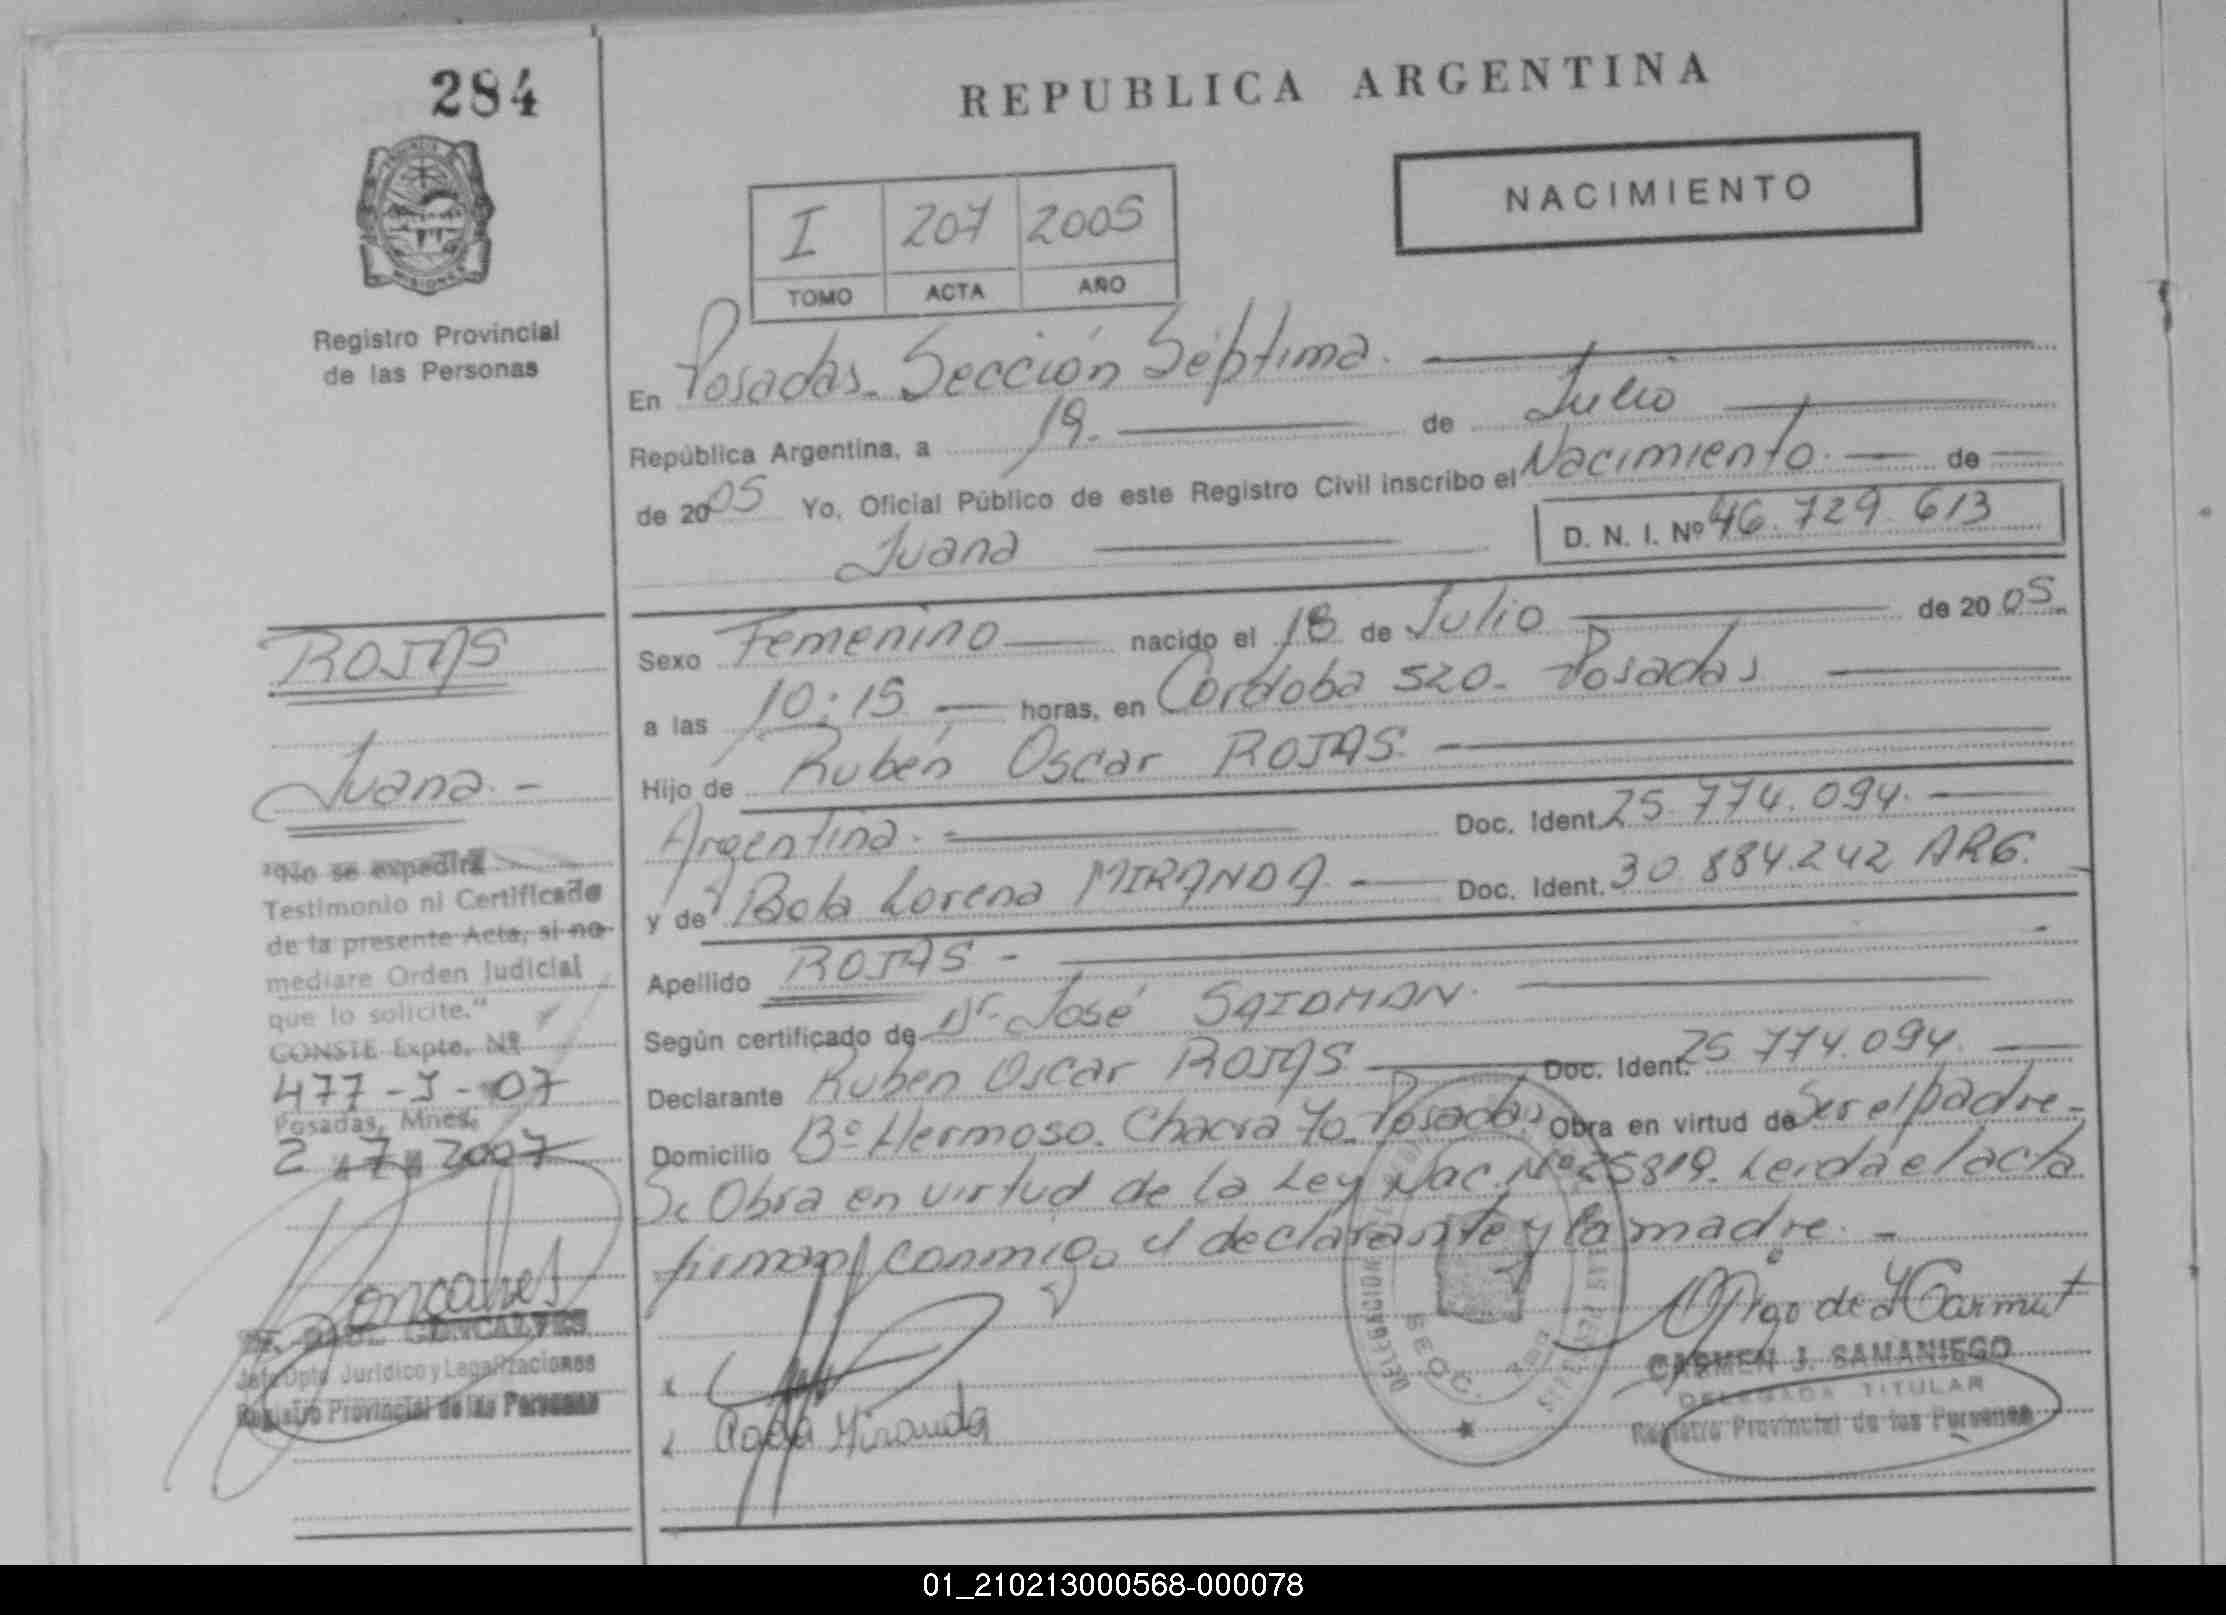 284
REPUBLICA ARGENTINA
NACIMIENTO
I 207 2005
TOMO ACTA AÑO
MISIONES
Registro Provincial
de las Personas
En Posadas. Sección Séptima.
República Argentina, a 19. de Julio
de 2005 Yo, Oficial Público de este Registro Civil inscribo el Nacimiento. de
Juana
D. N. I. Nº 46.729.613
Sexo Femenino nacido el 18 de Julio de 2005.
a las 10:15 horas, en Cordoba 520. Posadas
Hijo de Rubén Oscar ROJAS.
Argentina. Doc. Ident. 25.774.094.
y de Paola Lorena MIRANDA. Doc. Ident. 30.884.242 ARG.
Apellido ROJAS -
Según certificado de Dr. José
Declarante Ruben Oscar ROJAS Doc. Ident. 25.774.094.
Domicilio Bº Hermoso. Chacra 70. Posadas Obra en virtud de Ser el padre.-
Se Obra en virtud de la Ley Nac. Nº 25819. Leida el acta
firman conmigo el declarante y la madre. -
ROJAS
Juana. -
"No se expedirá
Testimonio ni Certificado
de la presente Acta, si no
mediare Orden Judicial
que lo solicite."
CONSTE Expte. Nº
477-J-07
Posadas, Mnes.
2 .7. 2007
Goncalves
RAUL GONCALVES
Jefe Dpto Jurídico y Legalizaciones
Registro Provincial de las Personas
Paola Miranda
DELEGACION
SECC. 7ma
CARMEN J. SAMANIEGO
DELEGADA TITULAR
Registro Provincial de las Personas
01_210213000568-000078